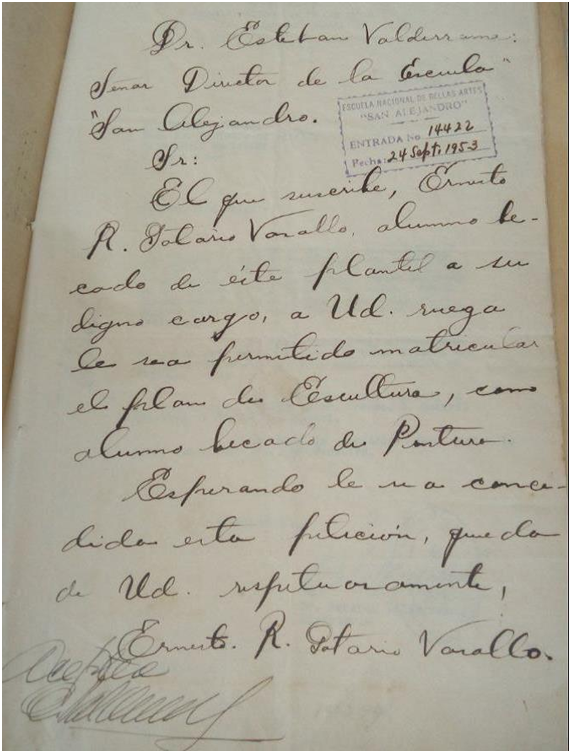 Dr. Esteban Valderrama:
Señor Director de la Escuela
"San Alejandro."
ESCUELA NACIONAL DE BELLAS ARTES
"SAN ALEJANDRO"
ENTRADA No. 14422
Fecha: 24 Sept. 1953
Sr:
El que suscribe, Ernesto
R. Varallo, alumno be-
cado de éste plantel a su
digno cargo, a Ud. ruega
le sea permitido matricular
el plan de Escultura, como
alumno becado de Pintura.
Esperando le sea conce-
dida esta petición, queda
de Ud. respetuosamente,
Ernesto. R. Varallo.